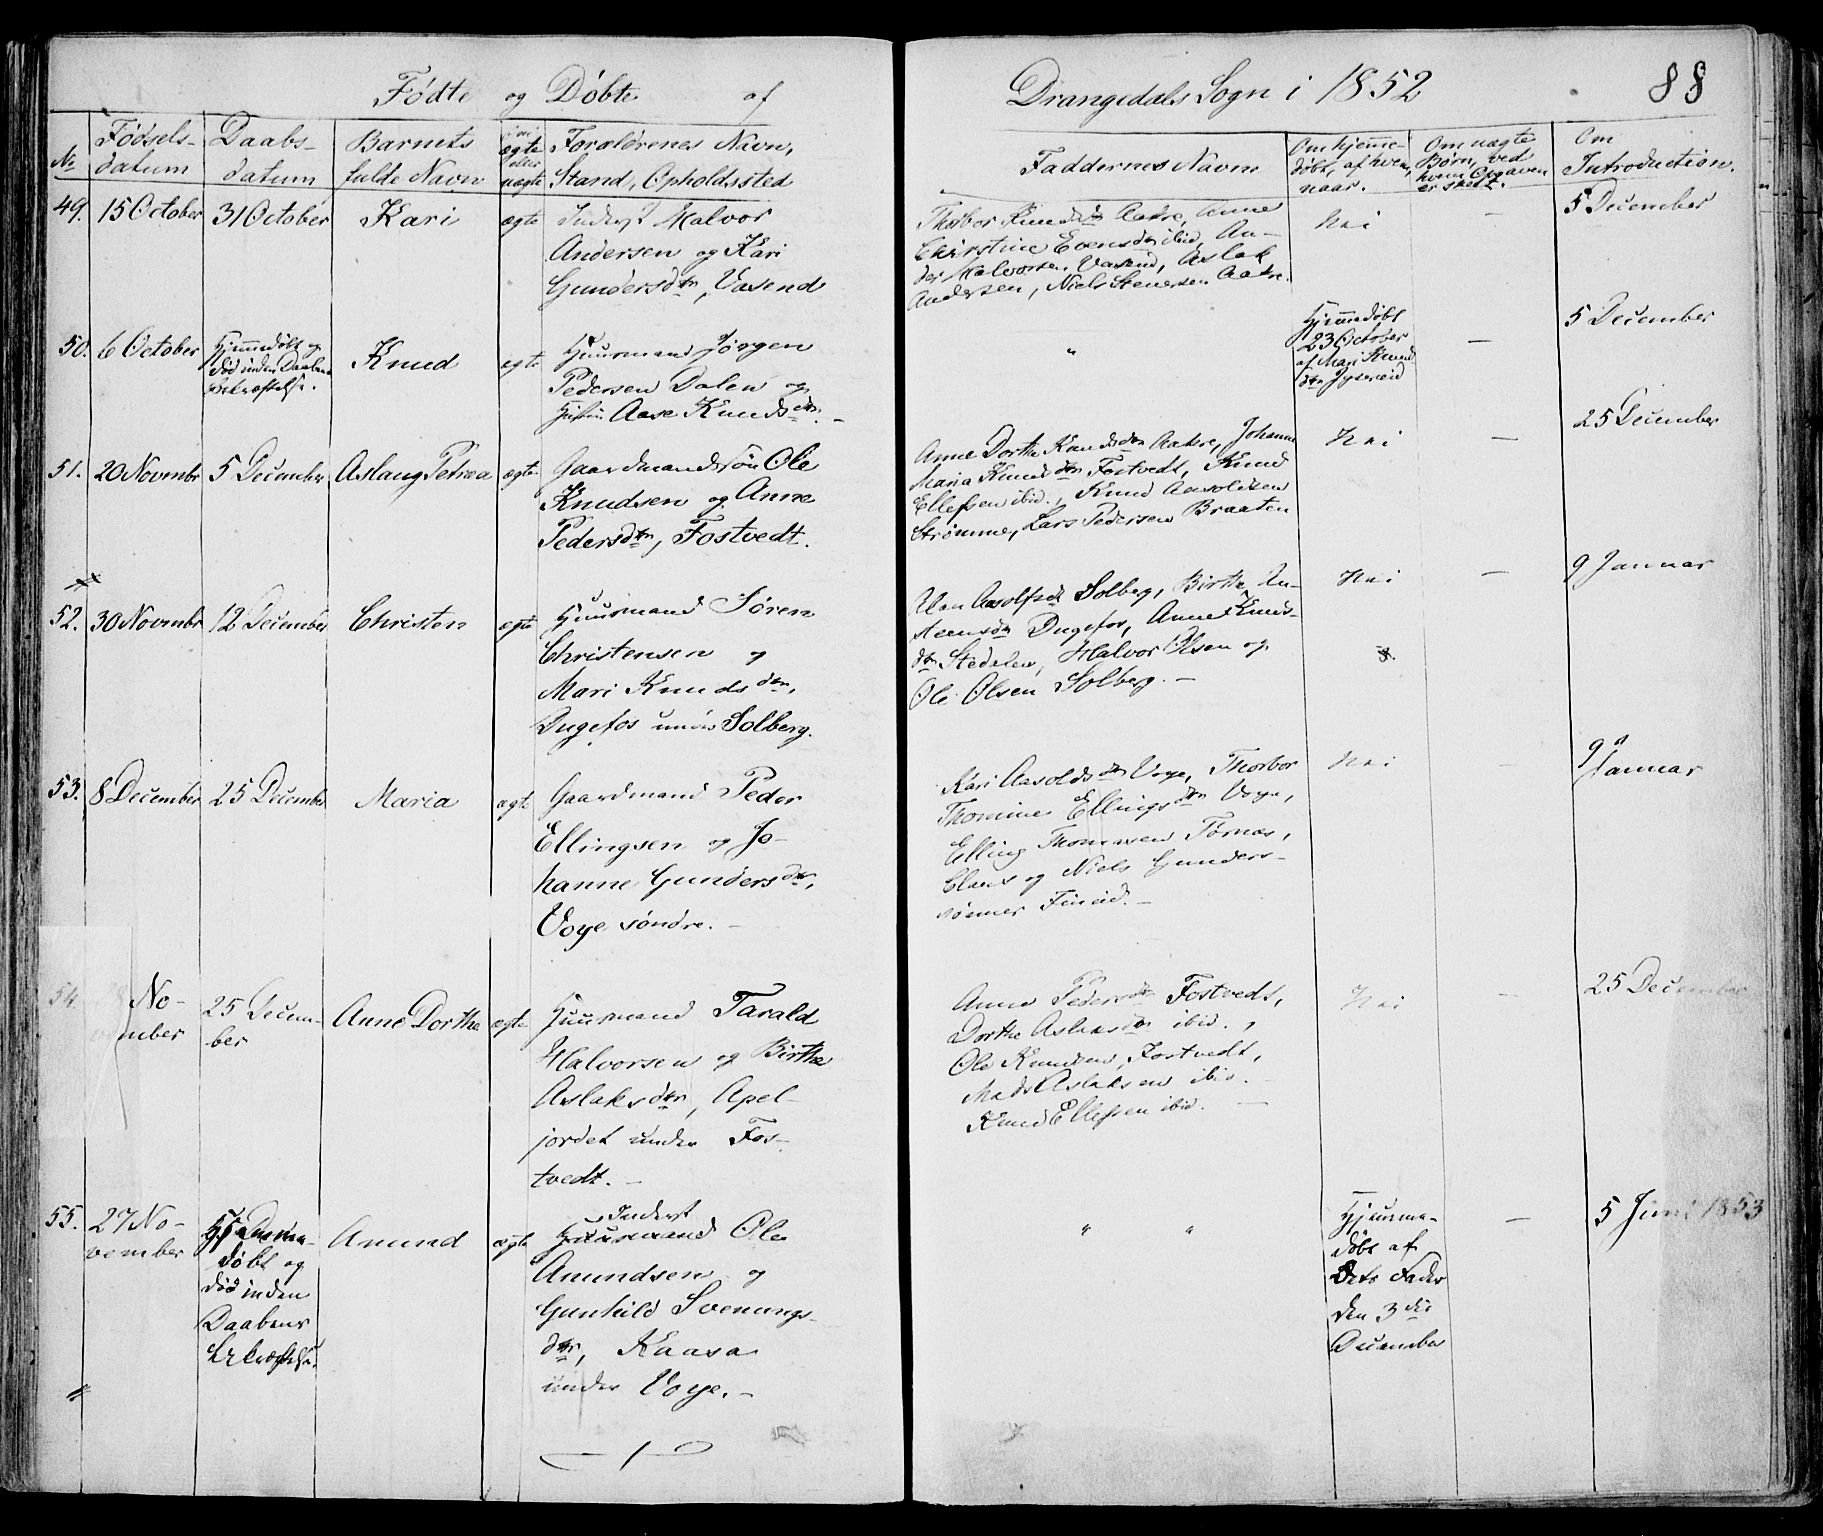 Fødte og Døbte af
Drangedals Sogn i 1852
88
No
Fødsels-
datum
Daabs-
datum
Barnets
fulde Navn
ægte
eller
uægte
Forældrenes Navn,
Stand, Opholdssted
Faddernes Navne
Om hjemme-
døbt, af hvem,
naar.
Om uægte
Børn, ved
hvem Opgaven
er skeet.
Om
Introduction.
49. 15 October 31 October Kari ægte
Inderst Halvor
Andersen og Kari
Gundersdtr, Vasend
Thorbor Knudsdtr Aakre, Anne
Christine Evensdtr ibid, An-
ders Halvorsen Vasend, Aslak
Andersen, Niels Stenersen Aakre.
Nei
-
5 December
50. 6 October
Hjemmedøbt og
død inden Daabens
Bekræftelse.
Knud
ægte
Huusmand Jørgen
Pedersen Dalen og
Hustru Aase Knudsdtr. -
"
Hjemmedøbt
23 October
af Mari Knuds
dtr
-
5 December
51. 20 Novembr 5 December Aslaug Petræa ægte
Gaardmandssøn Ole
Knudsen og Anne
Pedersdtr, Fostvedt.
Anne Dorthe Knudsdtr Aakre, Johanne
Maria Knudsdtr Fostvedt, Knud
Ellefsen ibid., Knud Aasoldsen
Strømme, Lars Pedersen Braaten
Nei
-
25 December
52. 30 Novembr 12 December Christen ægte
Huusmand Søren
Christensen og
Mari Knudsdtr,
Dugefos under Solberg.
Solberg, Birthe An-
steensdtr Dugefos, Anne Knuds-
dtr Stedalen, Halvor Olsen og
Ole Olsen Solberg. -
Nei
-
9 Januar
53. 8 December 25 December Maria ægte
Gaardmand Peder
Ellingsen og Jo-
hanne Gundersdtr,
Voje søndre. -
Kari Aasoldsdtr Voje, Thorbor
Thomine Ellingsdtr Voje,
Elling Thommesen Tørnes,
Claus og Niels Gunders-
sønner Fineid. -
Nei
-
9 Januar
54. 28 No-
vember
25 Decem-
ber
Anne Dorthe
ægte
Huusmand Tarald
Halvorsen og Birthe
Aslaksdtr, Apel-
jordet under Fos-
tvedt. -
Anne Pedersdtr Fostvedt,
Dorthe Aslaksdtr ibid.,
Ole Knudsen, Fostvedt,
Mads Aslaksen ibid.
Knud Ellefsen ibid. -
Nei
-
25 December
55. 27 No-
vember
Hjemme-
døbt og
død inden
Daabens
bekræftelse.
Anund
ægte
Inderst
Huusmand Ole
Anundsen og
Gunhild Svenungs-
dtr, Kaasa
under Voje. -
" "
Hjemme-
døbt af
dets Fader
den 3die
December
-
5 Juni 1853